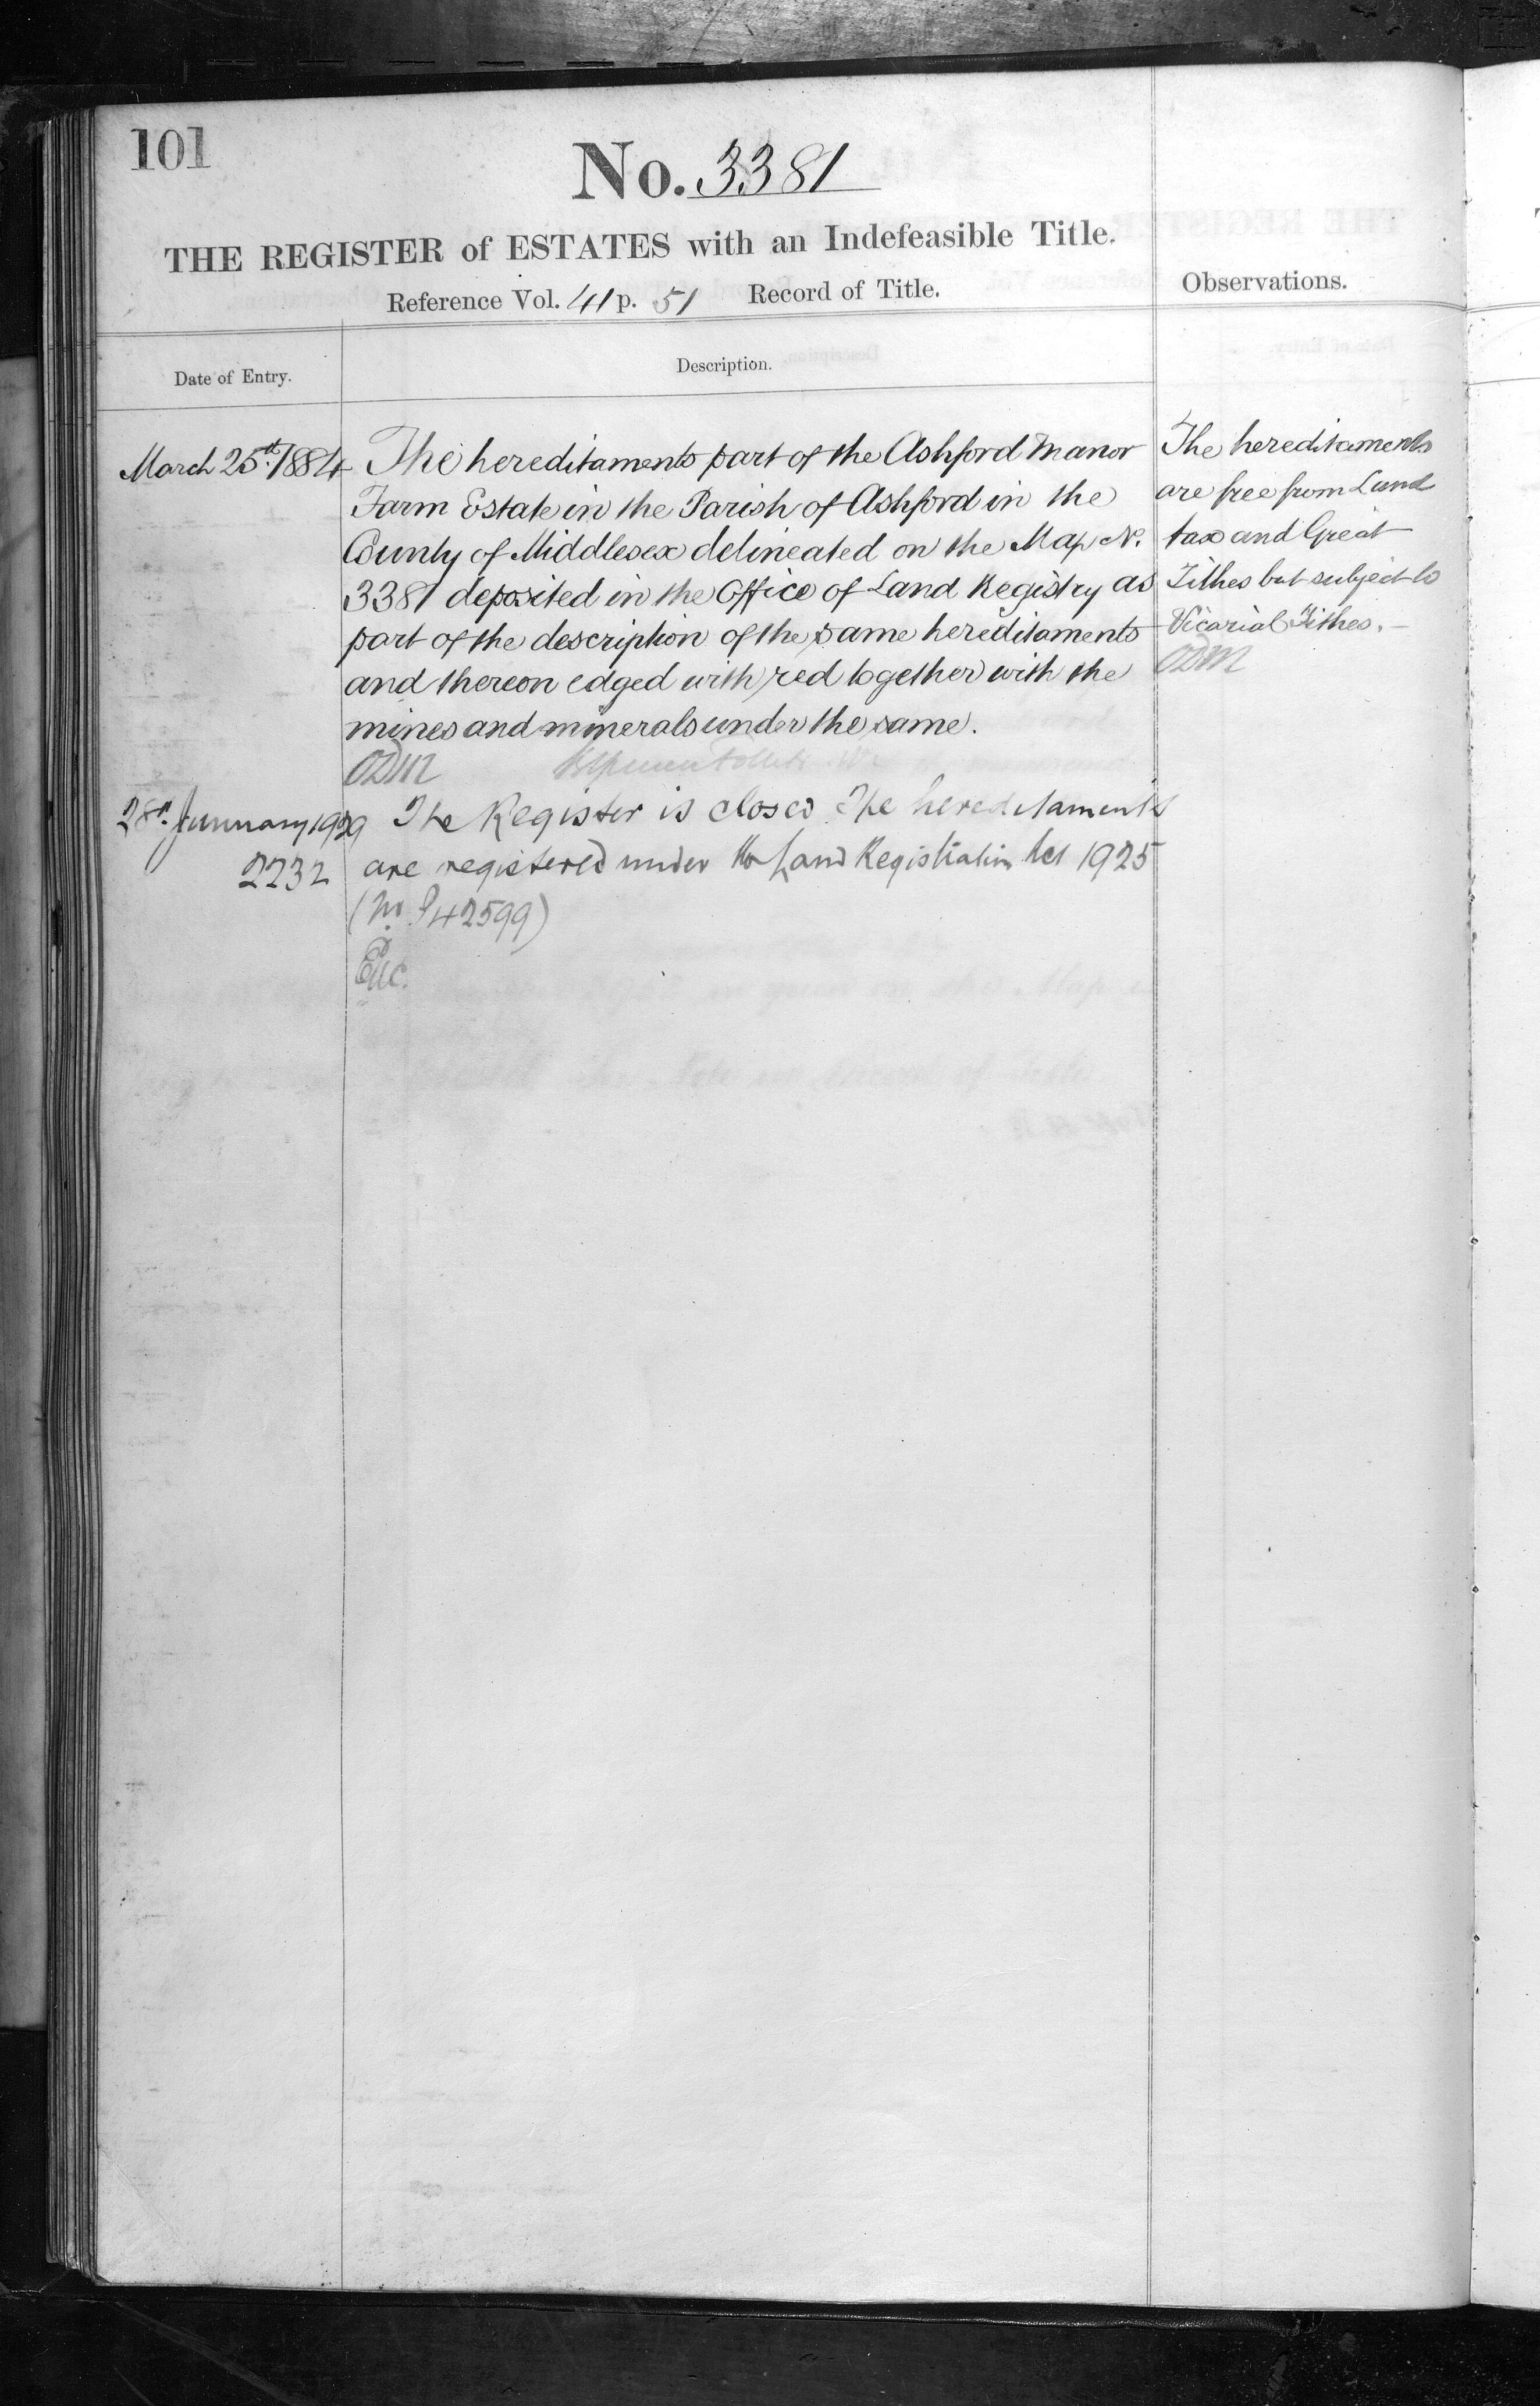 101
No. 3381
THE REGISTER of ESTATES with an Indefeasible Title.
Reference Vol. 41 p. 51 Record of Title.
Observations.
Date of Entry.
Description.
March 25th 1884
The hereditaments part of the Ashford Manor
Farm Estate in the Parish of Ashford in the
County of Middlesex delineated on the Map No.
3381 deposited in the Office of Land Registry as
part of the description of the same hereditaments
and thereon edged with red together with the
mines and minerals under the same.
ODM
The hereditaments
are free from Land
tax and Great
Tithes but subject to
Vicarial Tithes.
ODM
28th January 1929
2232
The Register is closed. The hereditaments
are registered under the Land Registration Act 1925
(No. P42599)